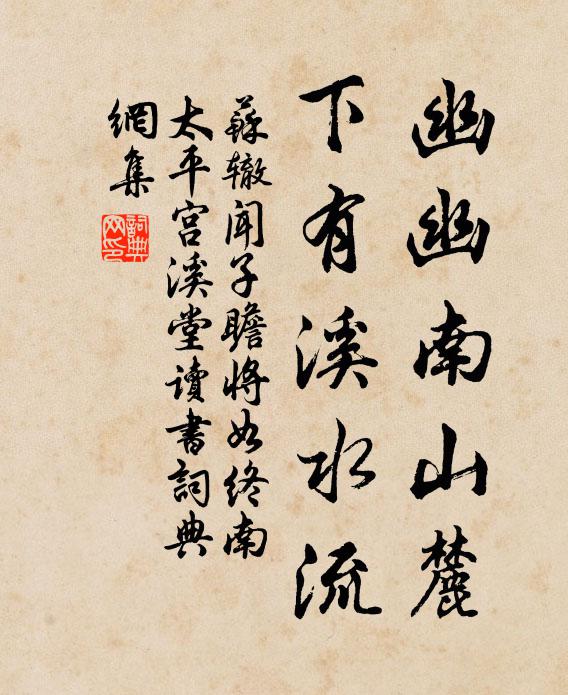 幽幽南山麓
下有溪水流
蘇轍聞子瞻將如終南
太平宮溪堂讀書詞典
網集
詞典
网印